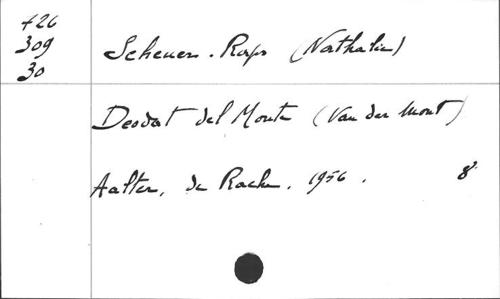 426
309
30
Scheuers. Rops (Nathalie)
Deodat del Monte (Van der Mont)
Aalter, de Rache. 1956. 8°